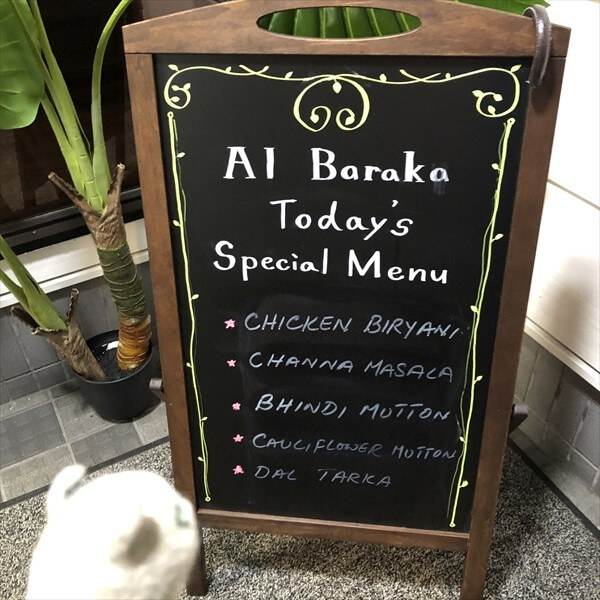 Al Baraka
Today's
Special Menu
* CHICKEN BIRYANI
* CHANNA MASALA
* BHINDI MUTTON
* CAULIFLOWER MUTTON
* DAL TARKA